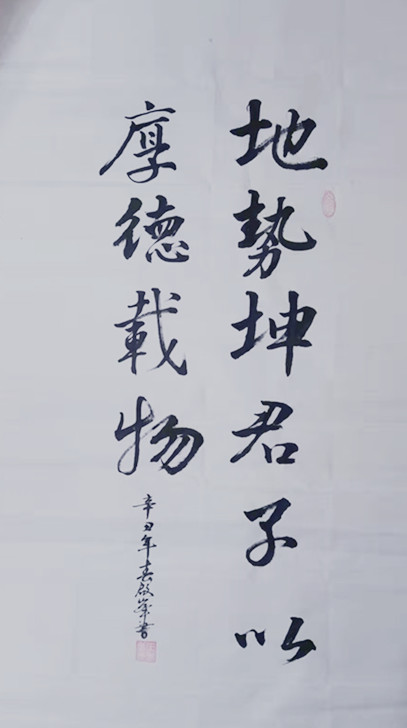 地勢坤君子以
厚德載物
辛丑年春啟峯書